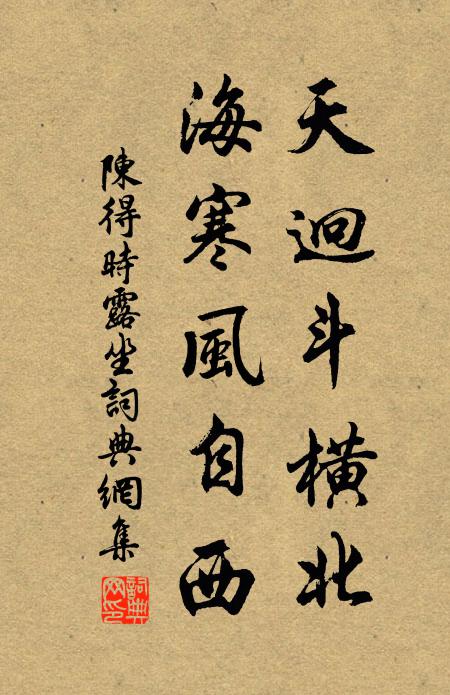 天迥斗橫北
海寒風自西
陳得時露坐詞典網集
詞典網印